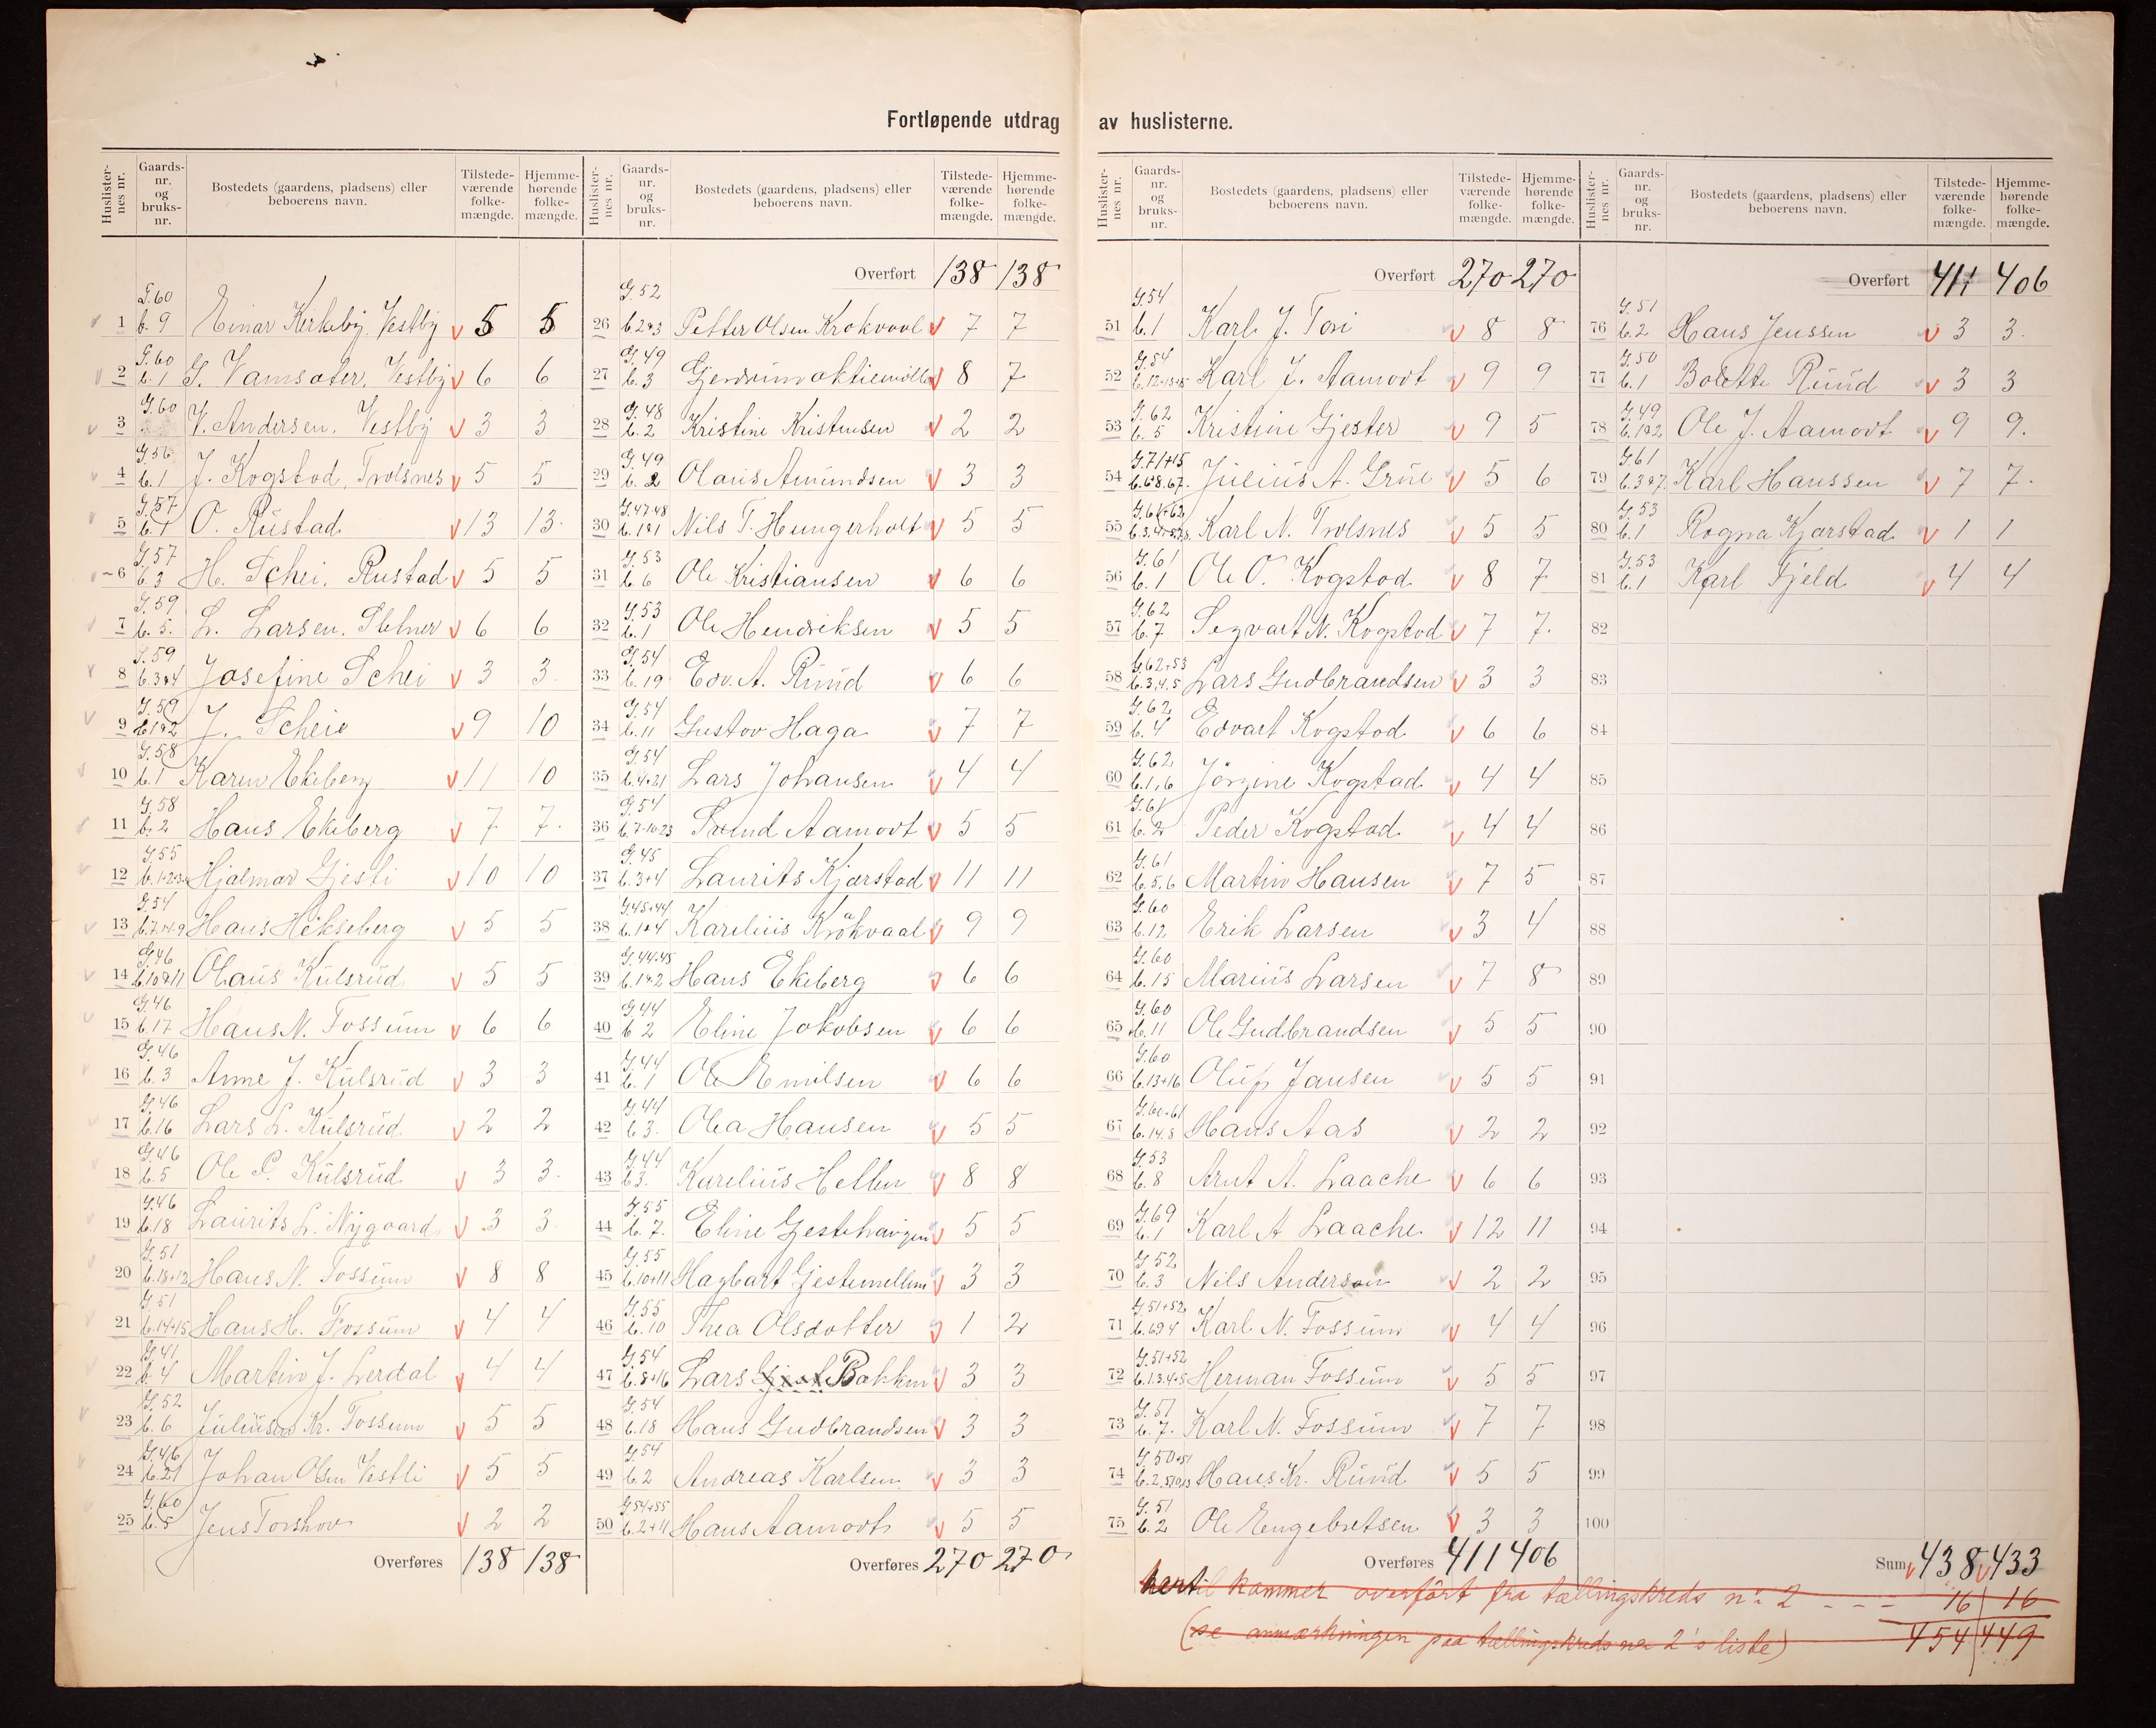 Fortløpende utdrag av huslisterne.
Huslister-nes nr. Gaards-nr. og bruks-nr. Bostedets (gaardens, pladsens) eller beboerens navn. Tilstede-værende folke-mængde. Hjemme-hørende folke-mængde.
G.60
1 b.9 Einar Kirkeby, Vestby 5 5
G.60
2 b.1 Vestby 6 6
G.60
3 V. Andersen. Vestby 3 3
G.56
4 b.1 J. Kogstad, Trolsnes 5 5
G.57
5 b.1 O. Rustad 13 13.
G.57
6 b.3 H. Schei, Rustad 5 5
G.59
7 b.5. L. Larsen. 6 6
G.59
8 b.3&4 Josefine Schei 3 3.
G.59
9 b.1&2 J. Scheie 9 10
G.58
10 b.1 Karen Ekeberg 11 10
G.58
11 b.2 Hans Ekeberg 7 7.
G.55
12 Hjalmar Gjesti 10 10
G.54
13 Hans Hekseberg 5 5
G.46
14 b.10&11 Olaus Kulsrud 5 5
G.46
15 b.17 Hans N. Fossum 6 6
G.46
16 b.3 Anne J. Kulsrud 3 3
G.46
17 b.16 Lars L. Kulsrud 2 2
G.46
18 b.5 Ole P. Kulsrud 3 3.
G.46
19 b.18 Laurits L. Nygaard 3 3
G.51
20 Hans N. Fossum 8 8
G.51
21 b.14+15 Hans H. Fossum 4 4
G.41
22 b.4 Martin J. Lerdal 4 4
G.52
23 b.6 Kr. Fossum 5 5
G.46
24 b.21 Johan Olsen Vestli 5 5
G.60
25 b.5 Jens Torshov 2 2
Overføres 138 138
Huslister-nes nr. Gaards-nr. og bruks-nr. Bostedets (gaardens, pladsens) eller beboerens navn. Tilstede-værende folke-mængde. Hjemme-hørende folke-mængde.
Overført 138 138
G.52
26 b.2&3 Petter Olsen Krokvaal 7 7
G.49
27 b.3 Gjerdrum aktiemölle 8 7
G.48
28 b.2 Kristine Kristensen 2 2
G.49
29 b.2 Olaus Amundsen 3 3
G.47-48
30 b.1&1 Nils T. Hungerholt 5 5
G.53
31 b.6 Ole Kristiansen 6 6
G.53
32 b.1 Ole Hendriksen 5 5
G.54
33 b.19 Edv. A. Ruud 6 6
G.54
34 b.11 Gustav Haga 7 7
G.54
35 b.4+21 Lars Johansen 4 4
G.54
36 b.7-10-23 Aamodt 5 5
G.45
37 b.3+4 Laurits Kjærstad 11 11
G.45+44
38 b.1&4 Karelius Kråkvaal 9 9
G.44.45
39 b.1&2 Hans Ekeberg 6 6
G.44
40 b 2 Eline Jakobsen 6 6
G.44
41 b.1 Ole Emilsen 6 6
G.44
42 b 3. Olea Hansen 5 5
G.44
43 b 3. Karelius Hellen 8 8
G.55
44 b.7. Eline Gjestehaugen 5 5
G.55
45 b.10+11 Hagbart Gjestemellem 3 3
G.55
46 b.10 Thea Olsdatter 1 2
G.54
47 b.8+16 Lars Bakken 3 3
G.54
48 b.18 Hans Gudbrandsen 3 3
G.54
49 b.2 Andreas Karlsen 3 3
G 54+55
50 b.2+11 Hans Aamodt 5 5
Overføres 270 270
Huslister-nes nr. Gaards-nr. og bruks-nr. Bostedets (gaardens, pladsens) eller beboerens navn. Tilstede-værende folke-mængde. Hjemme-hørende folke-mængde.
Overført 270 270
G.54
51 b.1 Karl J. Toni 8 8
G.54
52 Karl J. Aamodt 9 9
G.62
53 b.5 Kristine Gjester 9 5
G.71+15
54 Julius A. Grue 5 6
G.61+62
55 Karl N. Trolsnes 5 5
G.61
56 b.1 Ole O. Kogstad 8 7
G.62
57 b.7 Segvart N. Kogstad 7 7.
G.62+53
58 b.3,4,5 Lars Gudbrandsen 3 3
G.62
59 b.4 Edvart Kogstad 6 6
G.62
60 b.1,6 Jörgine Kogstad 4 4
G.61
61 b.2 Peder Kogstad 4 4
G.61
62 b.5.6 Martin Hansen 7 5
G.60
63 b.12 Erik Larsen 3 4
G.60
64 b.15 Marius Larsen 7 8
G.60
65 b.11 Ole Gudbrandsen 5 5
G.60
66 b.13+16 Oluf Jansen 5 5
G.60+61
67 b.14.8 Hans Aas 2 2
G.53
68 b.8 Arnt A. Laache 6 6
G.69
69 b.1 Karl A Laache 12 11
G 52
70 b.3 Nils Anderson 2 2
G.51+52
71 Karl N. Fossum 4 4
G.51+52
72 b.1.3.4+5 Herman Fossum 5 5
G.51
73 b.7. Karl N. Fossum 7 7
G.50+51
74 Hans Kr. Ruud 5 5
G.51
75 b.2 Ole Engebretsen 3 3
Overføres 411 406
Huslister-nes nr. Gaards-nr. og bruks-nr. Bostedets (gaardens, pladsens) eller beboerens navn. Tilstede-værende folke-mængde. Hjemme-hørende folke-mængde.
Overført 411 406
G.51
76 b.2 Hans Jenssen 3 3.
G.50
77 b.1 Bolette Ruud 3 3
G.49
78 b.1&2 Ole J. Aamodt 9 9.
G.61
79 b.3&7. Karl Hanssen 7 7.
G.53
80 b.1 Ragna Kjærstad 1 1
G.53
81 b.1 Karl Fjeld 4 4
82
83
84
85
86
87
88
89
90
91
92
93
94
95
96
97
98
99
100
Sum 438 433
hertil kommer overført fra tællingskreds nr. 2 - - - 16 16
(se anmærkningen paa tællingskreds nr 2's liste) 454 449